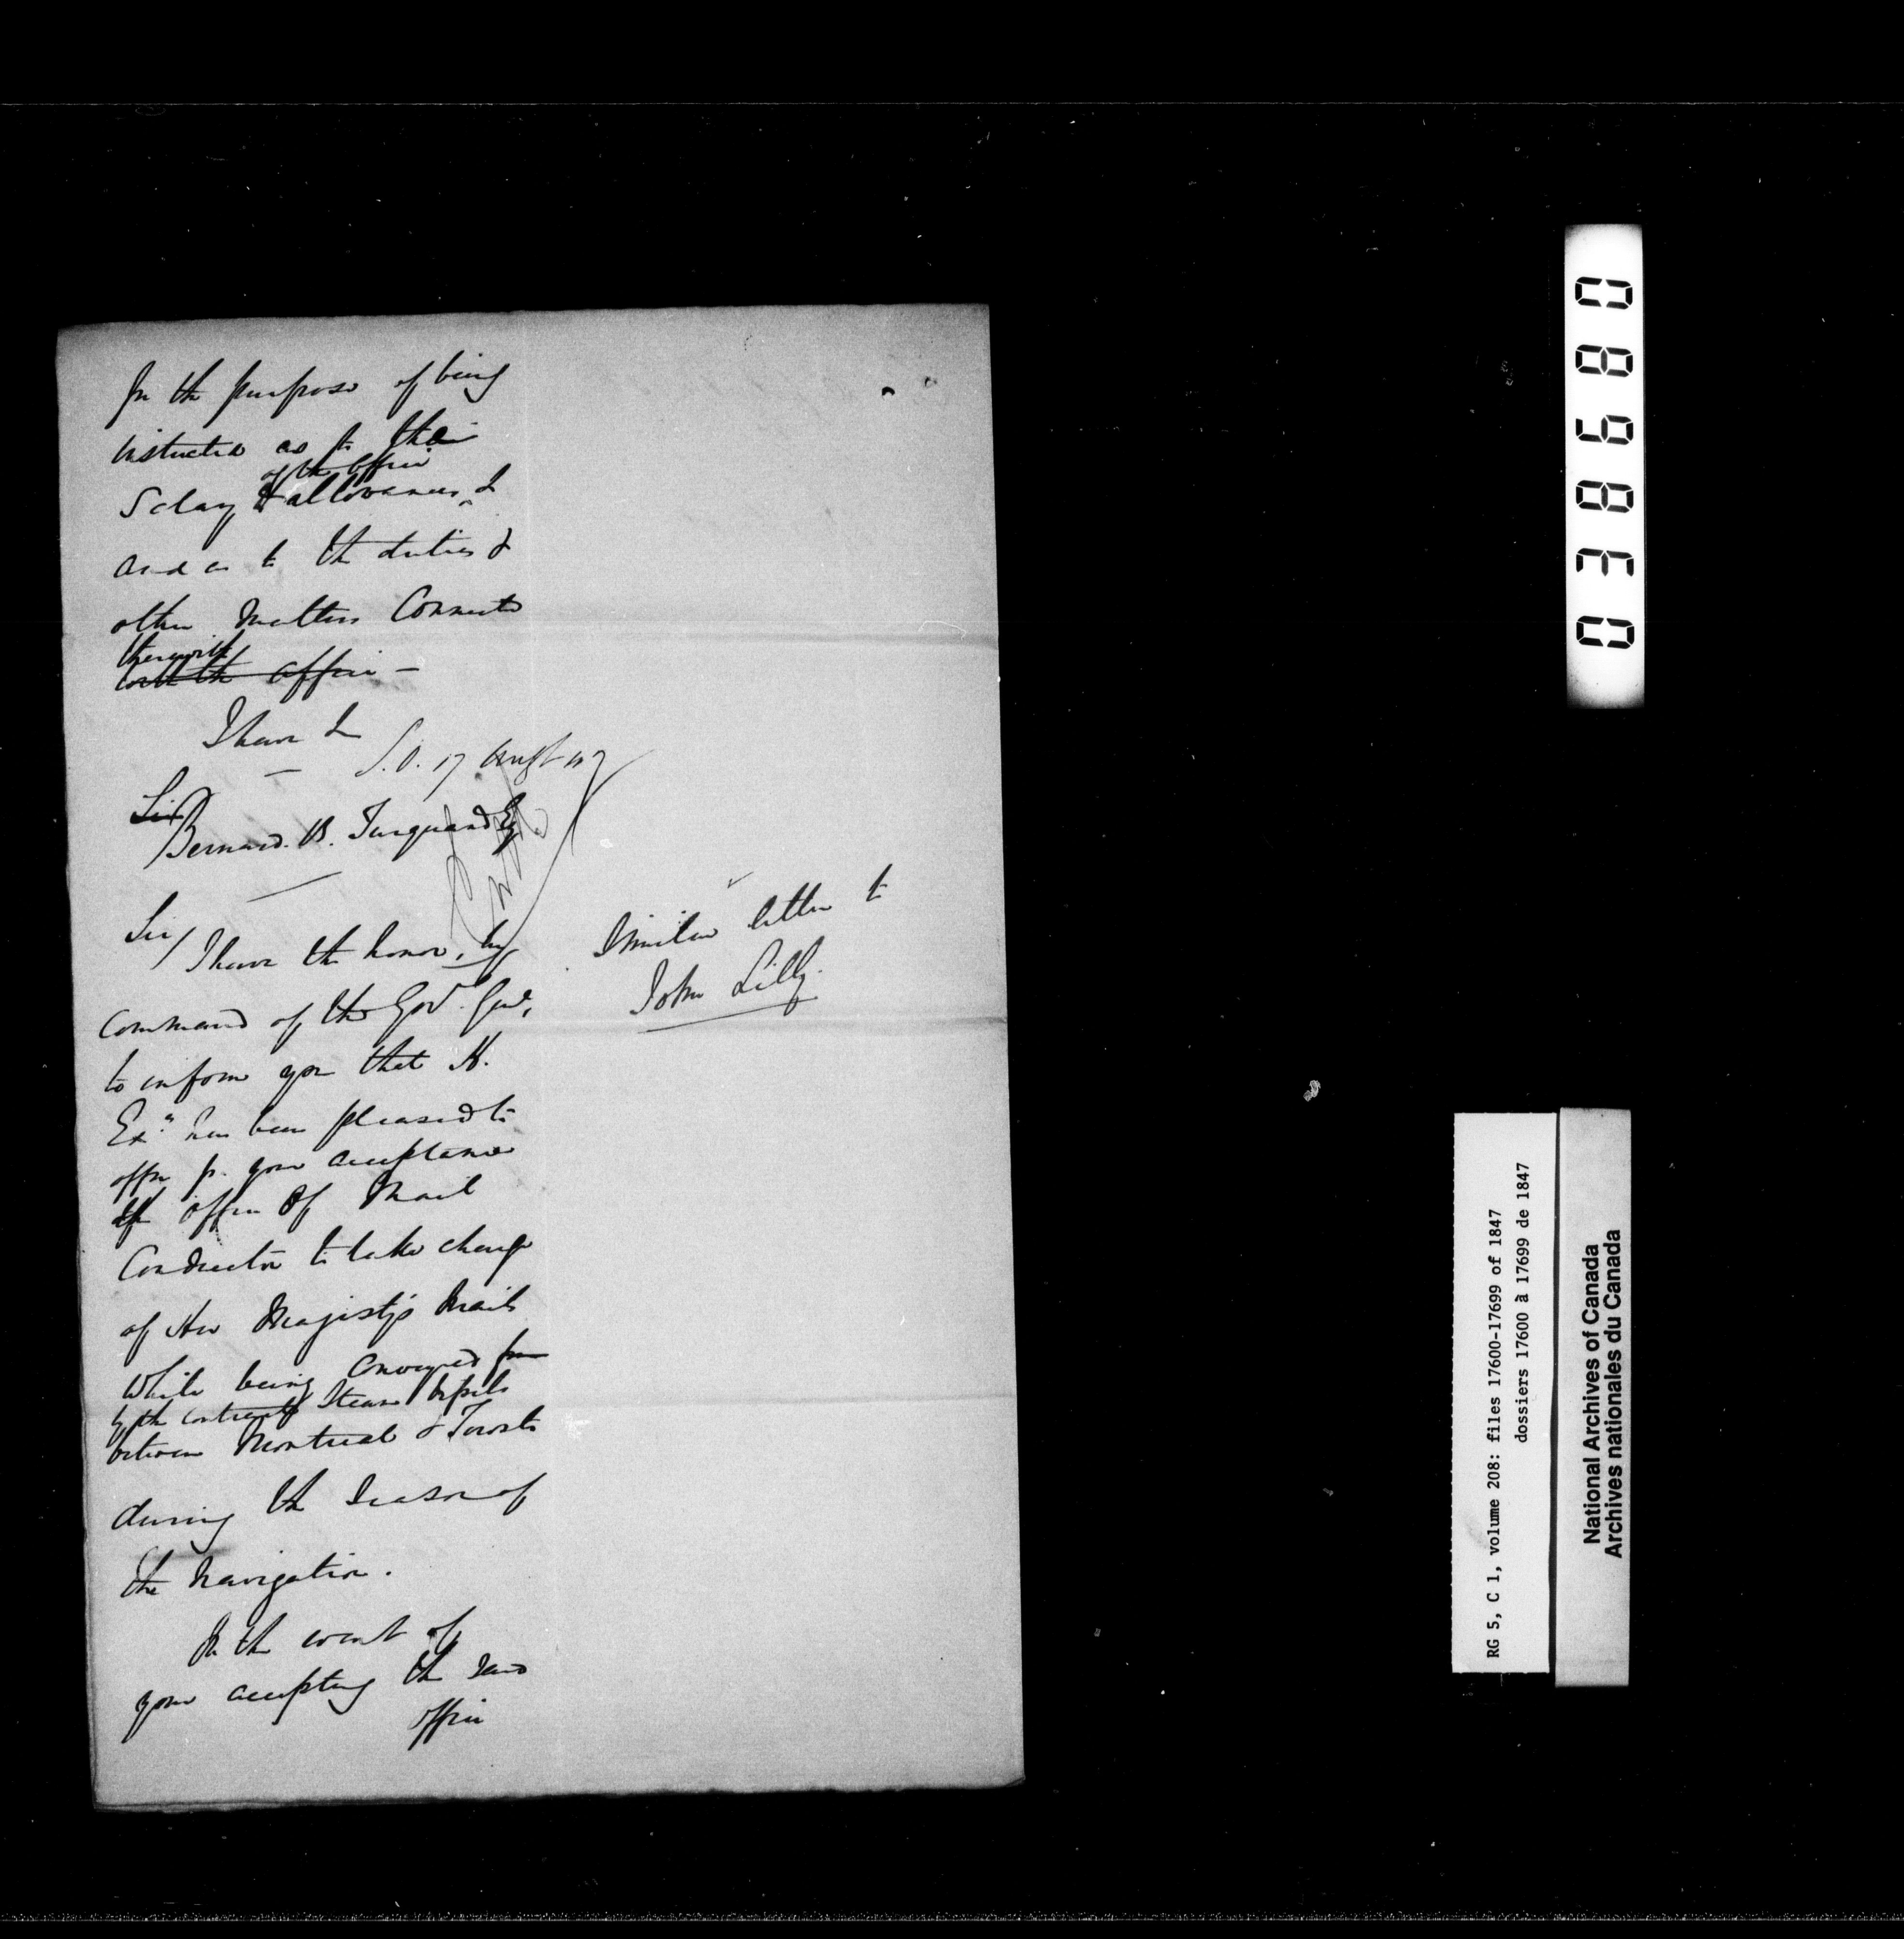 for the purpose of being
instructed as to the
of the office
Salary & allowances, &
and as to the duties &
other matters Connected
therewith
with the office —
I have &
S.O. 17 Augt 47
Sir
Bernard. B. Turquand Esq
Sir/
I have the honor, by
Command of the Gov. Genl,
to inform you that H.
Exy has been pleased to
offer for your acceptance
the office of Mail
Conductor to take charge
of Her Majesty's Mails
while being Conveyed from
by the contract Steam Vessels
between Montreal & Toronto
during the Season of
the Navigation.
In the event of
your accepting the said
office
Similar letter to
John Lilly.
038680
RG 5, C 1, volume 208: files 17600-17699 of 1847
dossiers 17600 à 17699 de 1847
National Archives of Canada
Archives nationales du Canada